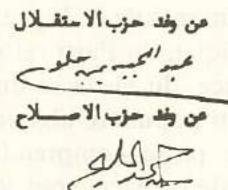 عن وفد حزب الاستقلال
عبد المجيد بن جلون
عن وفد حزب الاصلاح